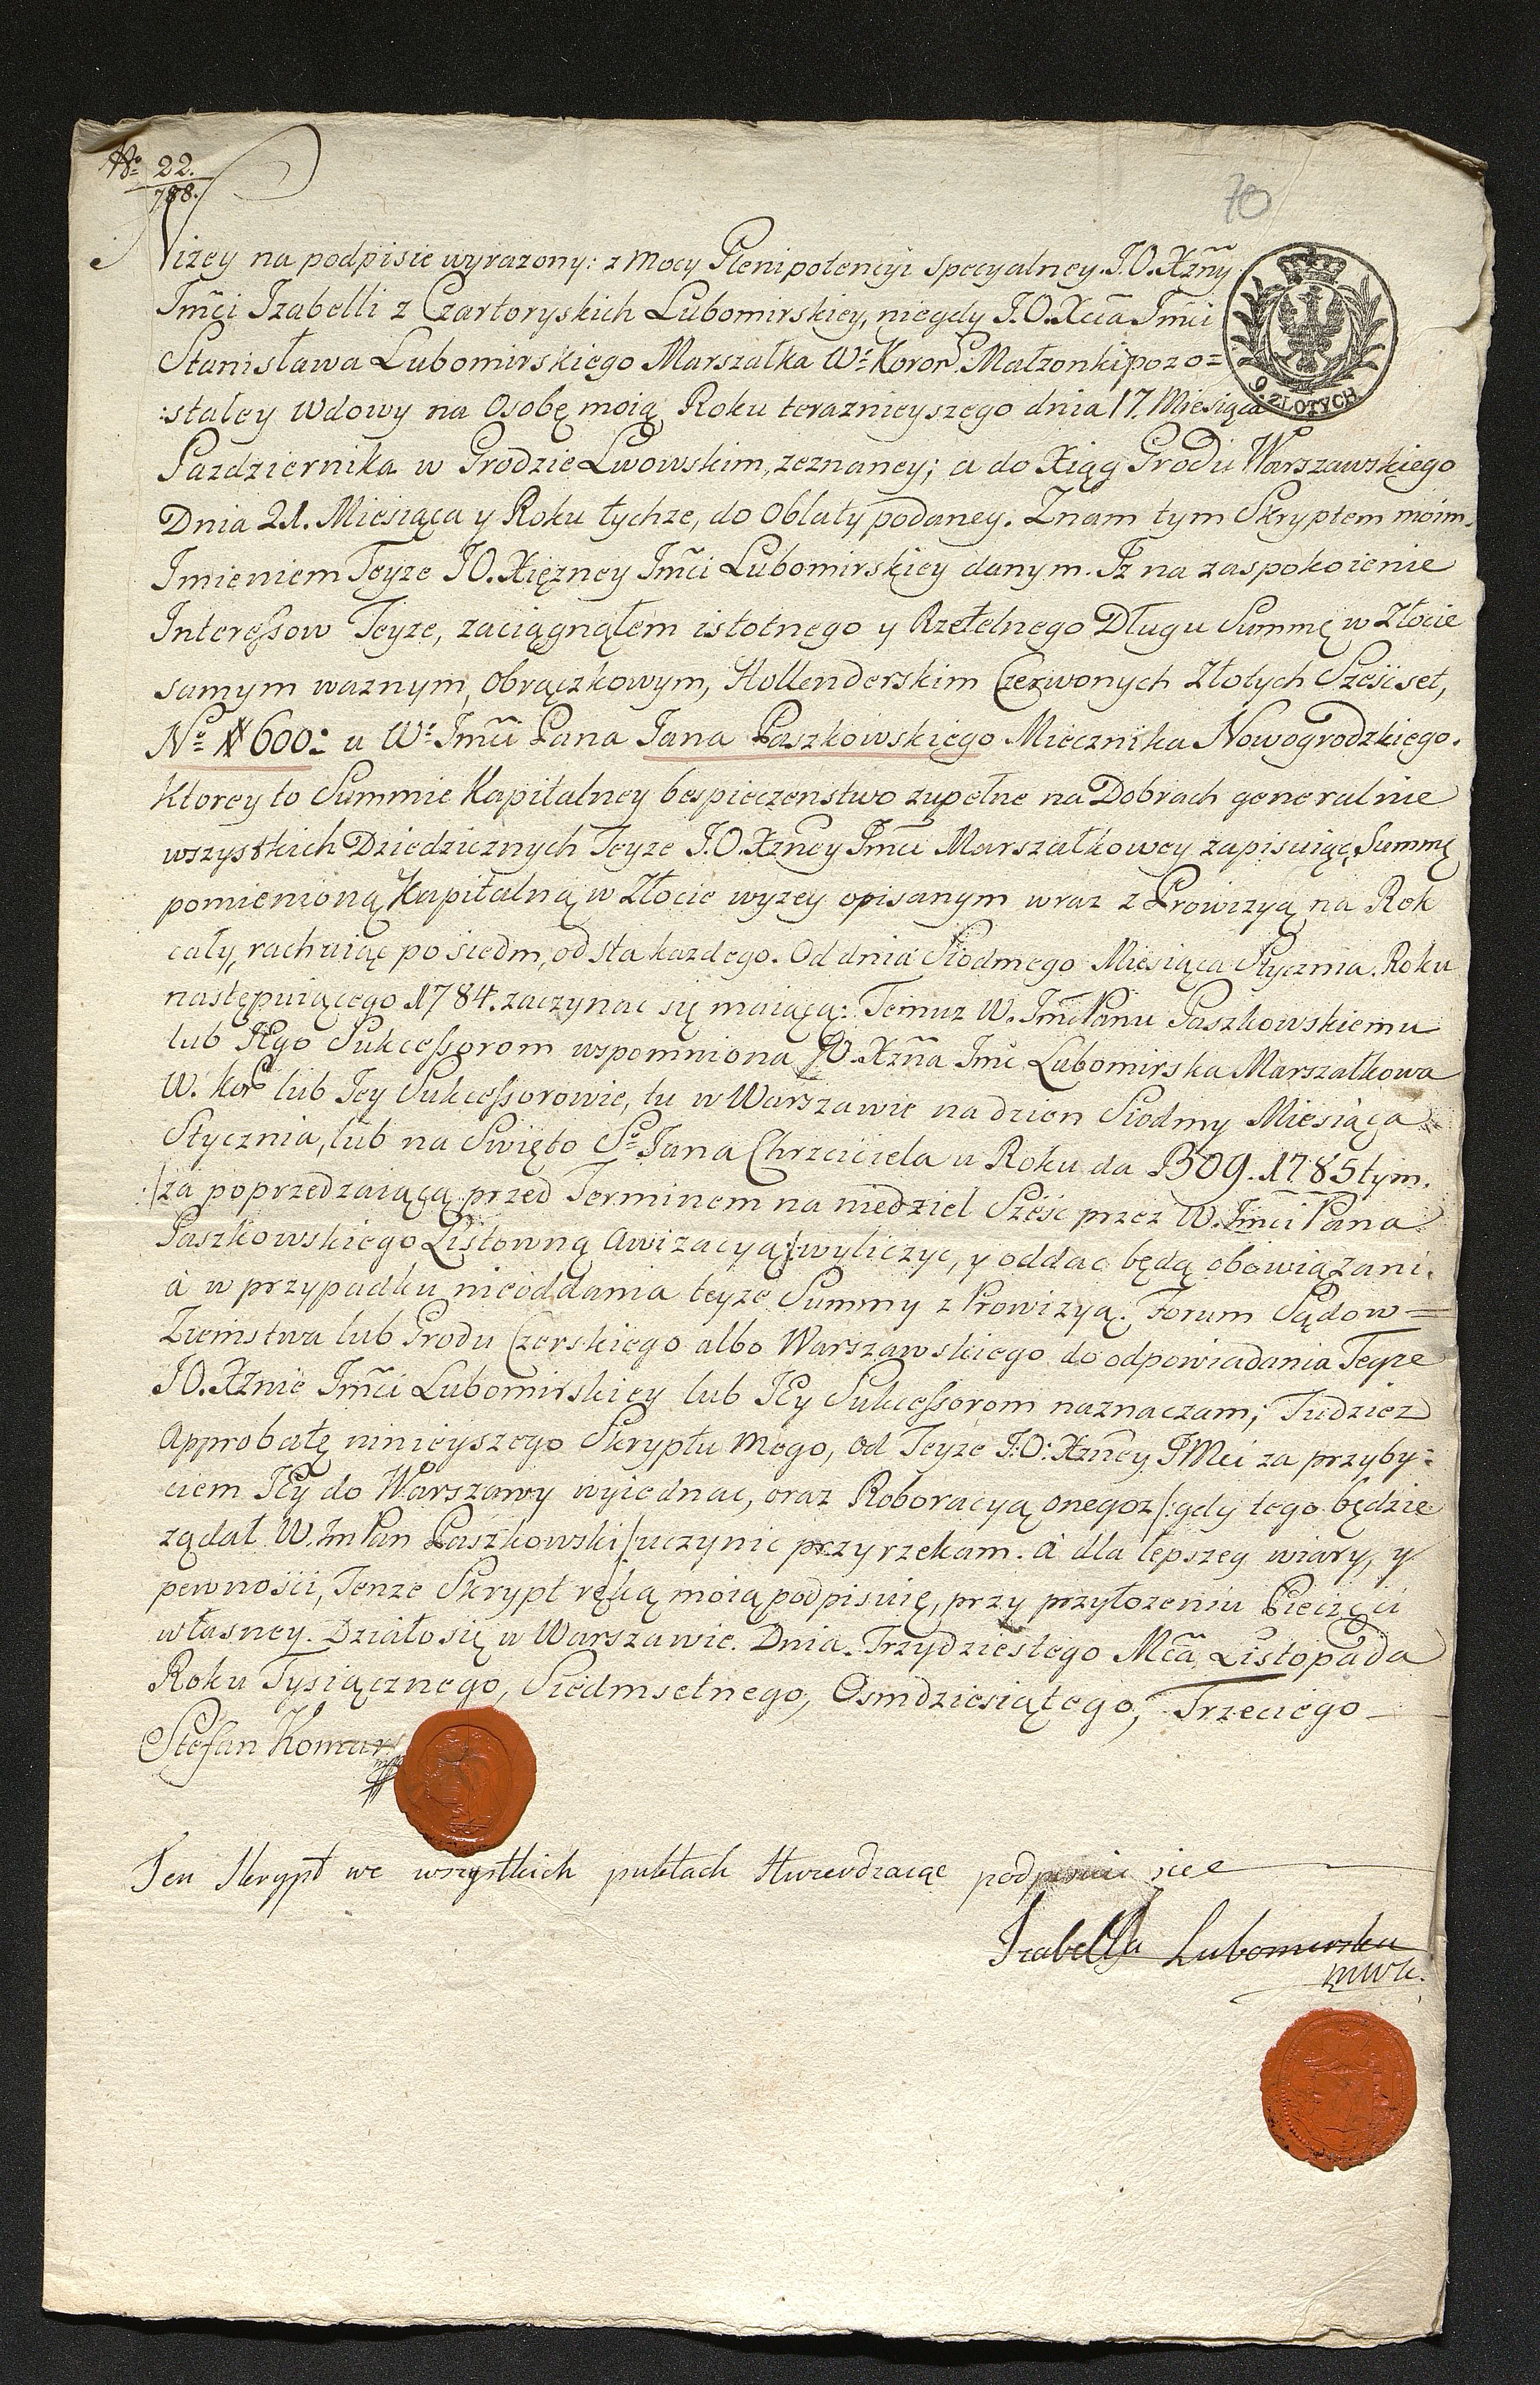 No 22.
788.
70
Niżey na podpisie wyrażony: z mocy Plenipotencyi specyalney J.O. Xżny
Jmci Izabelli z Czartoryskich Lubomirskiey, niegdy J.O. Xcia Jmci
Stanisława Lubomirskiego Marszałka W: Koron: Małżonki pozo=
:stałey Wdowy na Osobę moią Roku teraznieyszego dnia 17. Miesiąca
9. ZŁOTYCH
Pazdziernika w Grodzie Lwowskim, zeznaney; a do Xiąg Grodu Warszawskiego
Dnia 21. Miesiąca y Roku tychże, do Oblaty podaney. Znam tym Skryptem moim.
Jmieniem Teyże JO. Xiężney Jmci Lubomirskiey danym. Iż na zaspokoienie
Interessow Teyże, zaciągnąłem istotnego y Rzetelnego Długu Summę w Złocie
samym ważnym, Obrączkowym, Hollenderskim Czerwonych Złotych Sześćset,
No # 600: u W: Jmci Pana Jana Paszkowskiego Miecznika Nowogrodzkiego.
Ktorey to Summie Kapitalney bespieczenstwo zupełne na Dobrach generalnie
wszystkich Dziedzicznych Teyże J.O. Xżney Jmci Marszałkowey zapisuiąc, Summę
pomienioną Kapitalną w Złocie wyżey opisanym wraz z Prowizyą na Rok
cały, rachuiąc po siedm, od sta każdego. Od dnia Siodmego Miesiąca Stycznia. Roku
następuiącego 1784. zaczynac się maiącą: Temuż W. Jmci Panu Paszkowskiemu
lub JEgo Sukcessorom wspomniona JO. Xżna Jmc Lubomirska Marszałkowa
W. Kor lub Jey Sukcessorowie, tu w Warszawie na dzien Siodmy Miesiąca
Stycznia, lub na Swięto So Jana Chrzciciela w Roku da BOG. 1785 tym.
/:za poprzedzaiącą przed Terminem na niedziel Sześc przez W. Jmci Pana
Paszkowskiego Listowną Awizacyą:/ wyliczyc, y oddac będą obowiązani.
à w przypadku nieoddania teyże Summy z Prowizyą. Forum Sądow=
Ziemstwa lub Grodu Czerskiego albo Warszawskiego do odpowiadania Teyże
JO. Xżnie Jmci Lubomirskiey lub JEy Sukcessorom naznaczam; Tudzież
Approbatę ninieyszego Skryptu mego, od Teyże J:O: Xżney JMci za przyby=
ciem JEy do Warszawy wyiednac, oraz Roboracyą onegoż /: gdy tego będzie
żądał W. Jm Pan Paszkowski :/ uczynic przyrzekam. à dla lepszey wiary, y
pewności, Tenże Skrypt ręką moią podpisuię, przy przyłożeniu Pieczęci
własney. Działo się w Warszawie. Dnia. Trzydziestego Mca Listopada
Roku Tysiącznego, Siedmsetnego, Osmdziesiątego, Trzeciego
Stefan Komar
Ten Skrypt we wszystkich puktach stwierdzaiąc podpisuie sie
Izabella Lubomirska
mwk.